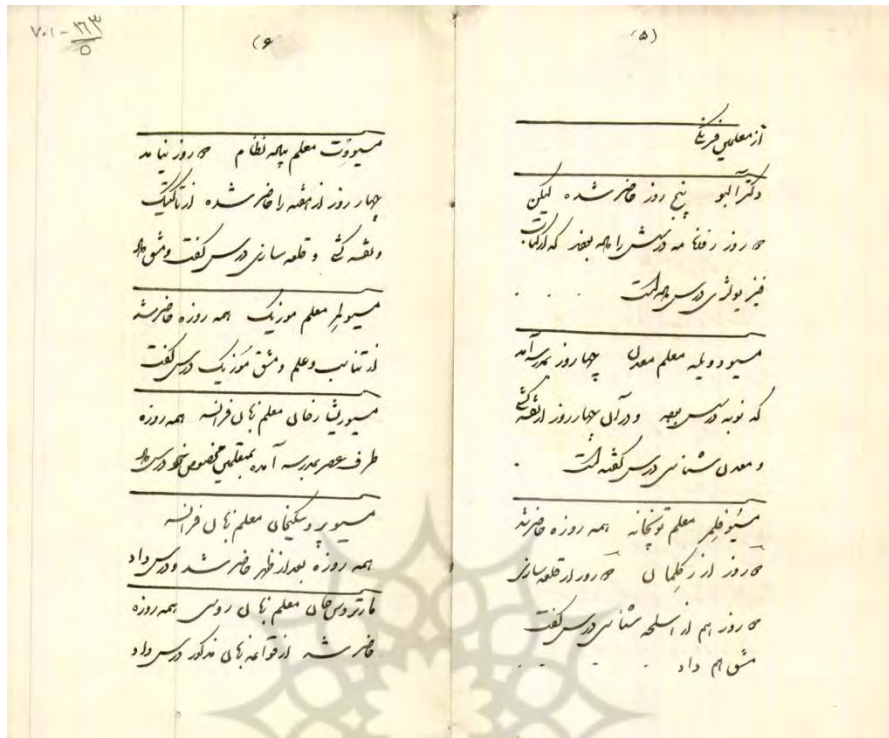 (۵)
از معلمین فرنگی
دکتر آلبو پنج روز حاضر شده لیکن
روز روزنامه درسش را داده بود که از کلیات
فیزیولوژی درس داده است
مسیو دویله معلم معدن چهار روز بمدرسه آمد
که نوبه درسش بوده و در آن چهار روز از نقشه کشی
و معدن شناسی درس گفته است
مسیو فلمر معلم توپخانه همه روزه حاضر شد
روز از رگلمان روز از قلعه سازی
روز هم از اسلحه شناسی درس گفت
مشق هم داد
(۶
۷۰۱ - ۱۶۳
۵
مسیو وت معلم پیاده نظام روز نیامد
چهار روز از هفته را حاضر شده از تاکتیک
و نقشه کشی و قلعه سازی درس گفت و مشق داد
مسیو لمر معلم موزیک همه روزه حاضر شد
از تناسب و علم و مشق موزیک درس گفت
مسیو ریشار خان معلم زبان فرانسه همه روزه
طرف عصر بمدرسه آمده بمتعلمین مخصوص خود درس داد
مسیو پروسکیخان معلم زبان فرانسه
همه روزه بعد از ظهر حاضر شد و درس داد
مارتروس خان معلم زبان روسی همه روزه
حاضر شد از قواعد زبان مذکور درس داد